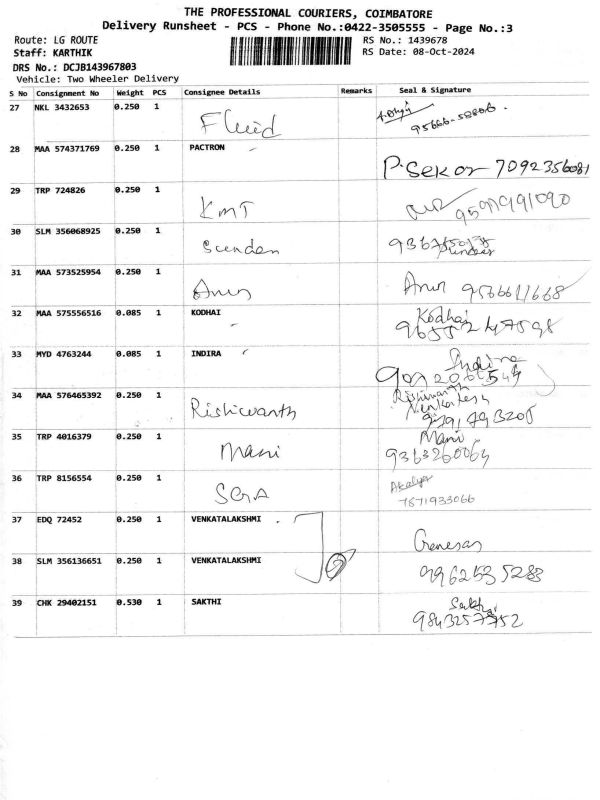 THE PROFESSIONAL COURIERS, COIMBATORE
Delivery Runsheet - PCS - Phone No.:0422-3505555 - Page No.:3
Route: LG ROUTE RS No.: 1439678
Staff: KARTHIK RS Date: 08-Oct-2024
DRS No.: DCJB143967803
Vehicle: Two Wheeler Delivery
S No Consignment No Weight PCS Consignee Details Remarks Seal & Signature
27 NKL 3432653 0.250 1 Fluid
28 MAA 574371769 0.250 1 PACTRON
P.Sekar 7092356081
29 TRP 724826 0.250 1
KMT
30 SLM 356068925 0.250 1 Scendon
31 MAA 573525954 0.250 1
Arun Arun 9566611668
32 MAA 575556516 0.085 1 KODHAI Kodhai
9655247598
33 MYD 4763244 0.085 1 INDIRA Indira
34 MAA 576465392 0.250 1 Rishiwanth Rishiwanth
Venkatesh
9791793205
35 TRP 4016379 0.250 1 Mani Mani
9363260064
36 TRP 8156554 0.250 1 Akalya
7871933066
37 EDQ 72452 0.250 1 VENKATALAKSHMI
Ganesan
38 SLM 356136651 0.250 1 VENKATALAKSHMI 2
9962535283
39 CHK 29402151 0.530 1 SAKTHI Sakthi
9843257752